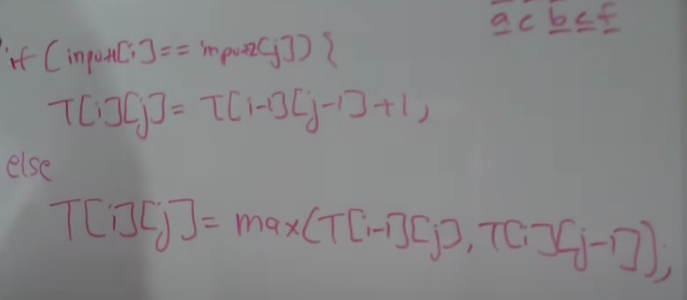 a c b c f
if (input1[i] == input2[j]) {
T[i][j] = T[i-1][j-1] + 1;
else
T[i][j] = max(T[i-1][j], T[i][j-1]);